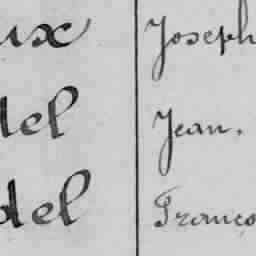 ux Joseph
del Jean.
del Franço